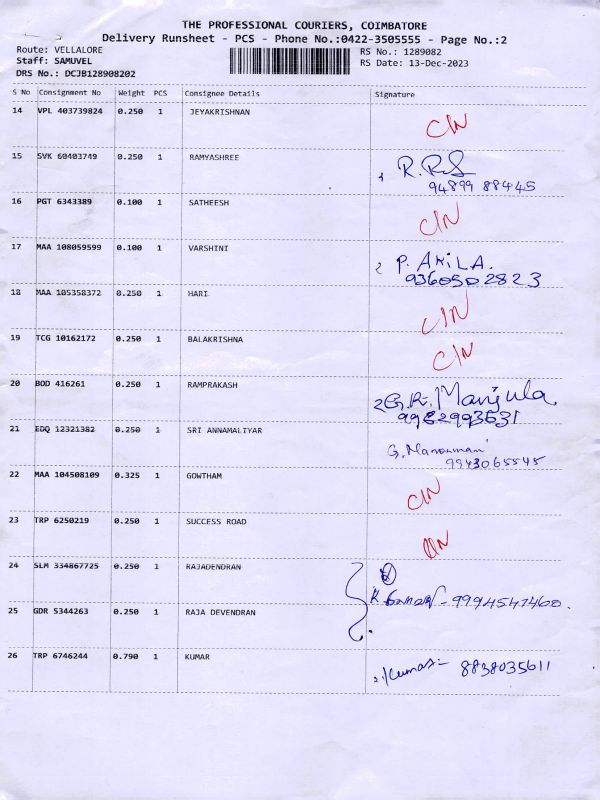 THE PROFESSIONAL COURIERS, COIMBATORE
Delivery Runsheet - PCS - Phone No.:0422-3505555 - Page No.:2
Route: VELLALORE
Staff: SAMUVEL
DRS No.: DCJB128908202
RS No.: 1289082
RS Date: 13-Dec-2023
S No Consignment No Weight PCS Consignee Details Signature
14 VPL 403739824 0.250 1 JEYAKRISHNAN C/N
15 SVK 60403749 0.250 1 RAMYASHREE R.RS
94899 88445
16 PGT 6343389 0.100 1 SATHEESH C/N
17 MAA 108059599 0.100 1 VARSHINI P. AKILA.
9360502823
18 MAA 105358372 0.250 1 HARI C/N
19 TCG 10162172 0.250 1 BALAKRISHNA C/N
20 BOD 416261 0.250 1 RAMPRAKASH G.R. Manjula
21 EDQ 12321382 0.250 1 SRI ANNAMALIYAR
9943065545
22 MAA 104508109 0.325 1 GOWTHAM C/N
23 TRP 6250219 0.250 1 SUCCESS ROAD
24 SLM 334867725 0.250 1 RAJADENDRAN
9994547460.
25 GDR 5344263 0.250 1 RAJA DEVENDRAN
26 TRP 6746244 0.790 1 KUMAR Kumar 8838035611